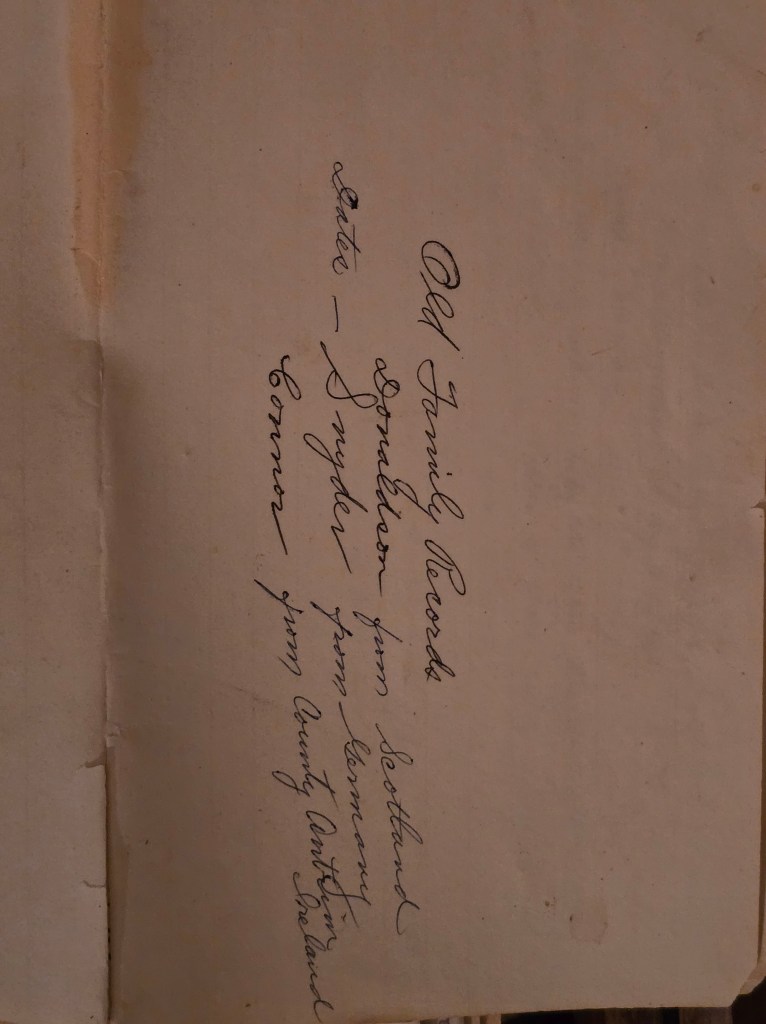 Old Family Records
Donaldson from Scotland
Dates — Snyder from Germany
Connor from County Antrim
Ireland